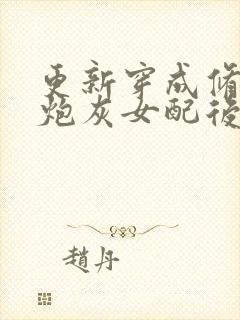 更新穿成修
炮灰女配後
趙丹